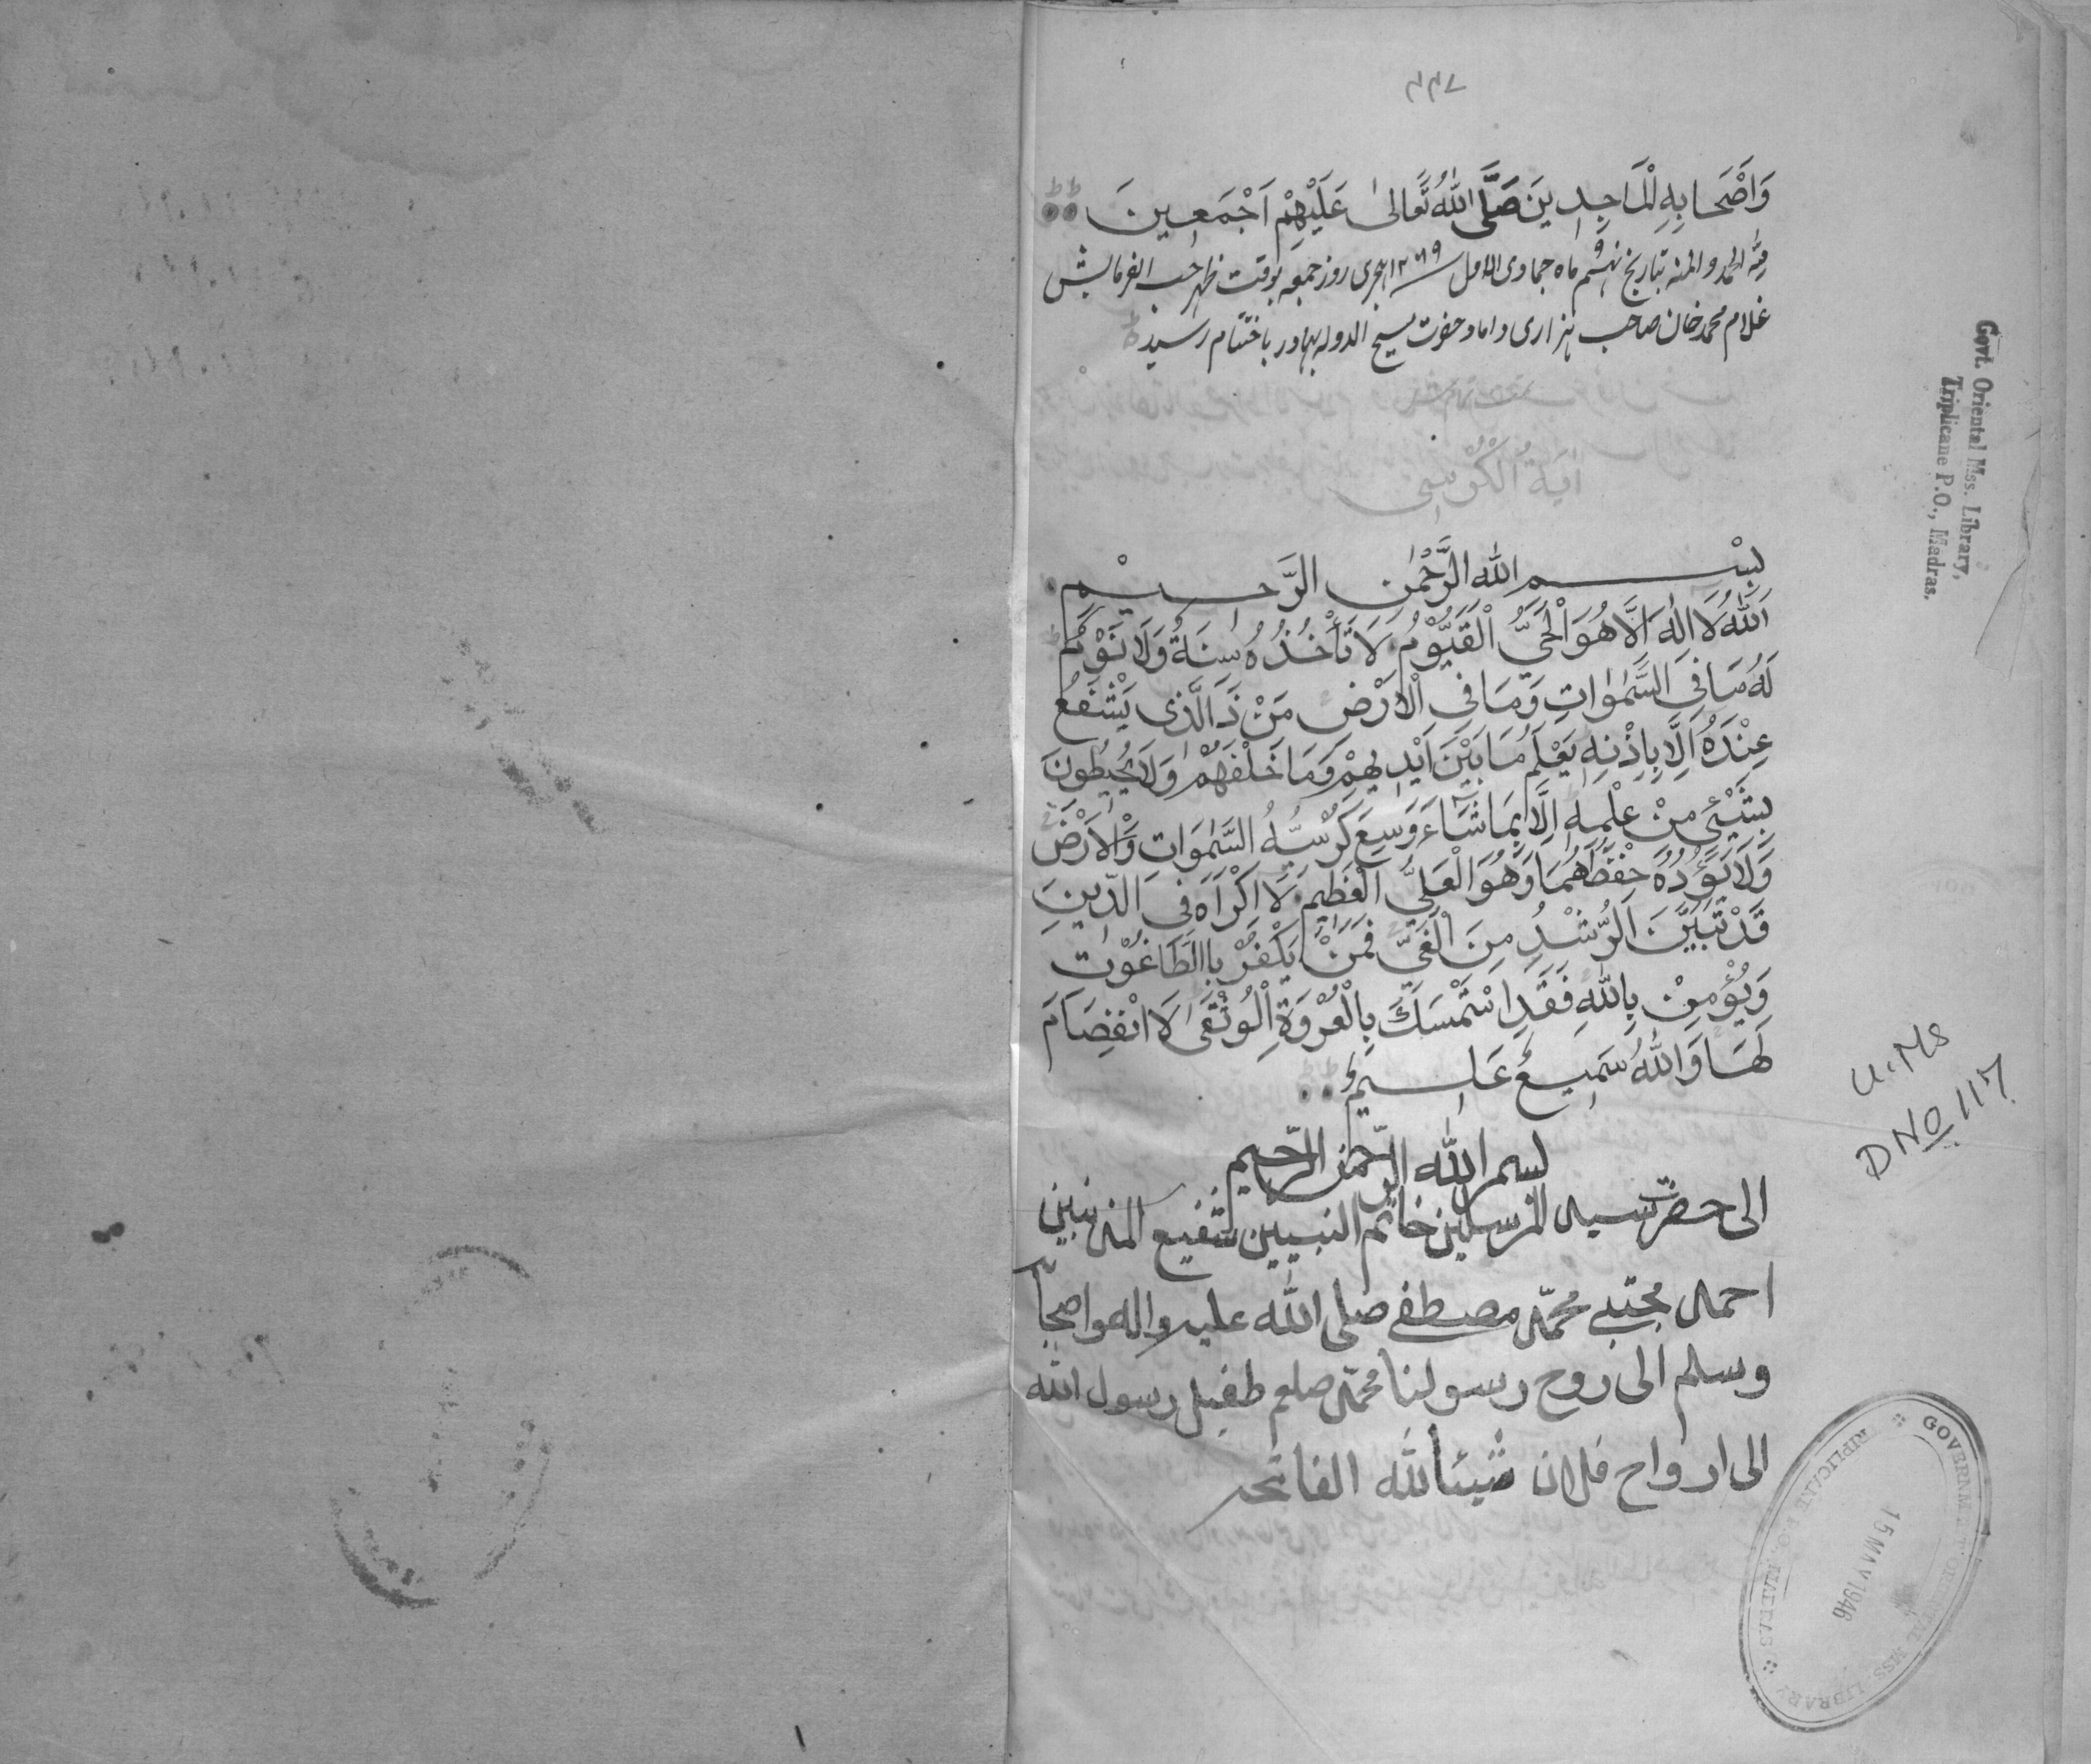 ۲۲۷
وَاَصْحَابِهِ لْمَاجِدِينَ صَلَّى اللّٰهُ تَعَالىٰ عَلَيْهِمْ اَجْمَعِينَ
لِلّٰه الحمد والمنه بتاریخ ماه جمادی الاول ۱۲۶۹ ہجری روز جمعه بوقت ظہر حسب الفرمایش
غلام محمد خان صاحب ہزاری داماد حضرت مسیح الدوله بہادر باختتام رسید
اٰيَةُ الْكُرْسِى
بِسْمِ اللّٰهِ الرَّحْمٰنِ الرَّحِيْمِ
اَللّٰهُ لَا اِلٰهَ اِلَّا هُوَ الْحَىُّ الْقَيُّوْمُ لَا تَأْخُذُهُ سِنَةٌ وَلَا نَوْمٌ
لَهُ مَا فِى السَّمٰوَاتِ وَمَا فِى الْاَرْضِ مَنْ ذَالَّذِى يَشْفَعُ
عِنْدَهُ اِلَّا بِاِذْنِهِ يَعْلَمُ مَا بَيْنَ اَيْدِيهِمْ وَمَا خَلْفَهُمْ وَلَا يُحِيْطُونَ
بِشَيْئٍ مِنْ عِلْمِهِ اِلَّا بِمَا شَاءَ وَسِعَ كُرْسِيُّهُ السَّمٰوَاتِ وَالْاَرْضَ
وَلَا يَؤُدُهُ حِفْظُهُمَا وَهُوَ الْعَلِىُّ الْعَظِيْمُ لَا اِكْرَاهَ فِى الدِّيْنِ
قَدْ تَبَيَّنَ الرُّشْدُ مِنَ الْغَىِّ فَمَنْ يَكْفُرْ بِاالطَّاغُوْتِ
وَيُؤْمِنْ بِاللّٰهِ فَقَدِ اسْتَمْسَكَ بِالْعُرْوَةِ الْوُثْقٰى لَا انْفِصَامَ
لَهَا وَاللّٰهُ سَمِيعٌ عَلِيمٌ
بسم اللّٰه الرّحمٰن الرّحيم
الى حضرت سيد المرسلين خاتم النبيين شفيع المذنبين
احمد مجتبے محمّد مصطفے صلى اللّٰه عليه واله واصحاّ
وسلم الى روح رسولنا محمّد صلعم طفيل رسول اللّٰه
الى ارواح فلان شيئاً للّٰه الفاتحه
Govt. Oriental Mss. Library,
Triplicane P.O., Madras.
U. Ms
D No 117
GOVERNMENT ORIENTAL MSS LIBRARY
TRIPLICANE P.O. MADRAS
15 MAY 1946